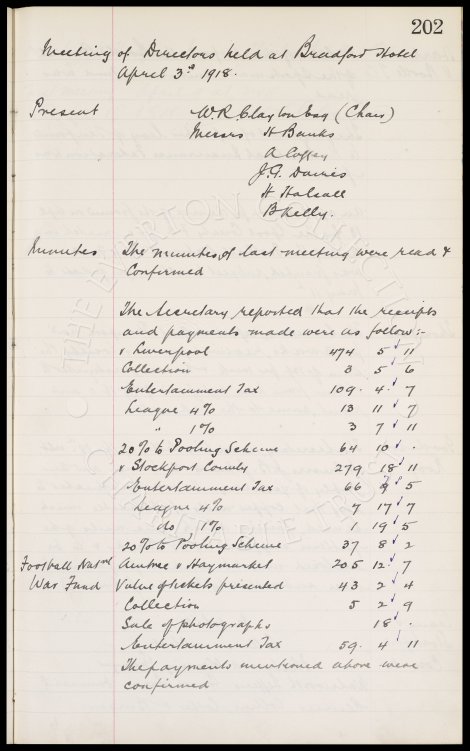 202
Meeting of Directors held at Bradford Hotel
April 3rd 1918.
Present W.R. Clayton Esq (Chair)
Messrs H Banks
A Coffey
J.G. Davies
H Halsall
B Kelly.
Minutes The minutes of last meeting were read &
Confirmed
The Secretary reported that the receipts
and payments made were as follow:-
v Liverpool 474 5 11
Collection 3 5 6
Entertainment Tax 109. 4 7
League 4% 13 11 7
" 1% 3 7 11
20% to Pooling Scheme 64 10 .
v Stockport County 279 18 11
Entertainment Tax 66 9 5
League 4% 7 17 7
do 1% 1 19 5
20% to Pooling Scheme 37 8 2
Football Natnl Aintree v Haymarket 205 12 7
War Fund Value of tickets presented 43 2 4
Collection 5 2 9
Sale of photographs 18 .
Entertainment Tax 59. 4 11
The payments mentioned above were
confirmed